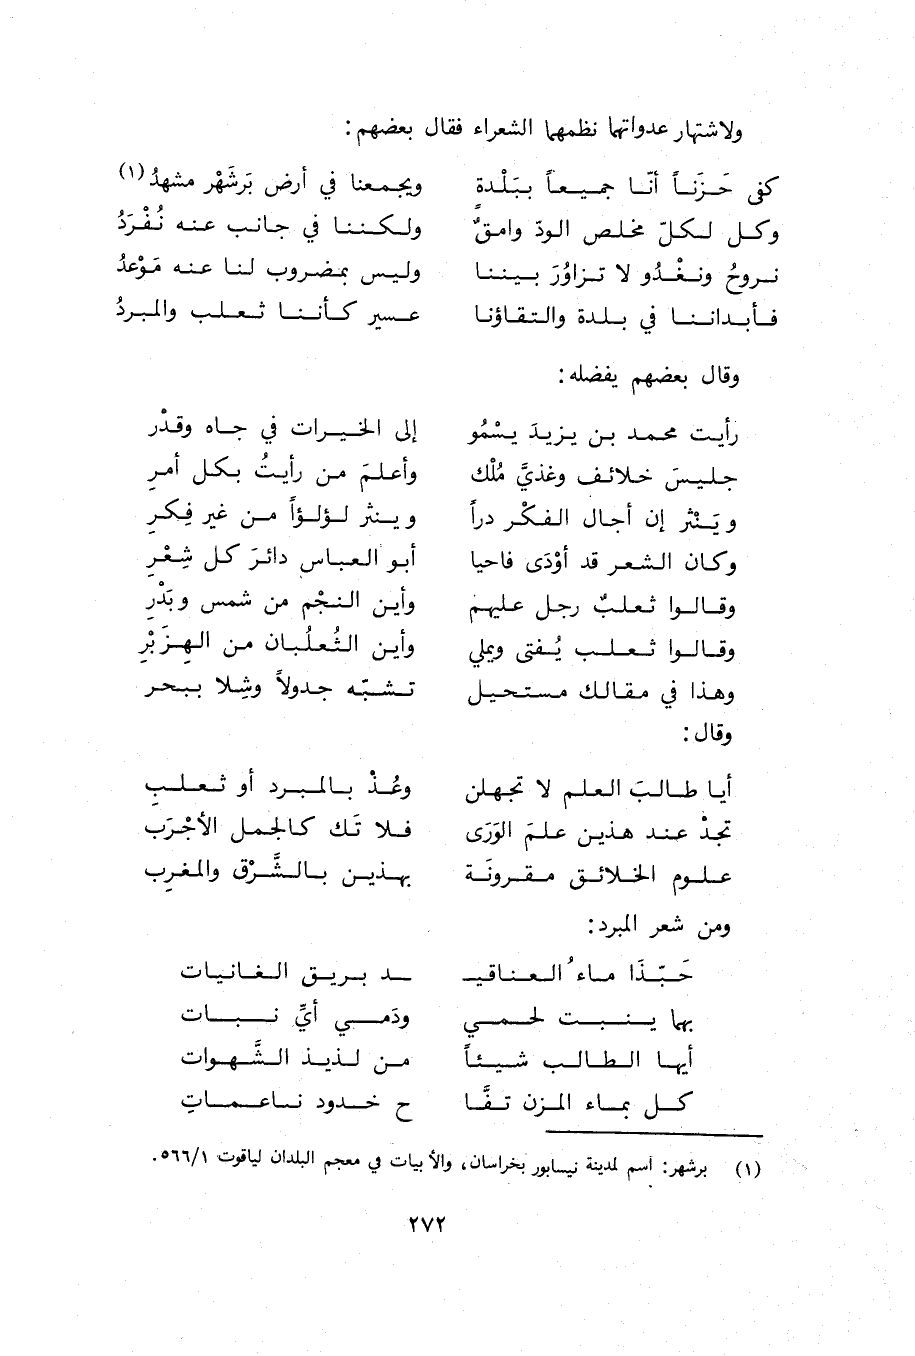 ولاشتهار عدواتها نظمها الشعراء فقال بعضهم:
كفى حَزَناً أنَّا جميعاً ببَلْدة ويجمعنا في أرض بَرشَهْر مشهدُ (١)
وكل لكلّ مخلص الودّ وامقٌ ولكننا في جانب عنه نُفْرَدُ
نروحُ ونَغْدُو لا تزاوُرَ بيننا وليس بمضروب لنا عنه مَوْعدُ
فأبداننا في بلدة والتقاؤنا عسير كأننا ثعلب والمبردُ
وقال بعضهم يفضله:
رأيت محمد بن يزيدَ يسْمُو إلى الخيرات في جاه وقدْر
جليسَ خلائف وغذيَّ مُلْك وأعلمَ من رأيتُ بكل أمرِ
ويَنْثر إن أجال الفكر دراً وينثر لؤلؤاً من غير فِكرِ
وكان الشعر قد أوْدَى فاحيا أبو العباس دائرَ كل شِعْرِ
وقالوا ثعلبٌ رجل عليهم وأين النجْم من شمس وبَدْرِ
وقالوا ثعلب يُفتي ويملي وأين الثُعلُبان من الهِزَبْرِ
وهذا في مقالك مستحيل تشبّه جدولاً وشلا ببحرِ
وقال:
أيا طالبَ العلم لا تجهلن وعُذْ بالمبرد أو ثعلبِ
تجدْ عند هذين علمَ الوَرَى فلا تَك كالجمل الأجْرَبِ
علوم الخلائق مقرونَة بهذين بالشَّرْق والمغربِ
ومن شعر المبرد:
حَبّذا ماءُ العناقيـ ـد بريق الغانيات
بها ينبت لحمي ودَمي أيَّ نبات
أيها الطالب شيئاً من لذيذ الشَّهوات
كل بماء المزن تفَّا ح خدود ناعمات
(١) برشهر: اسم لمدينة نيسابور بخراسان، والأبيات في معجم البلدان لياقوت ٥٦٦/١.
٢٧٢